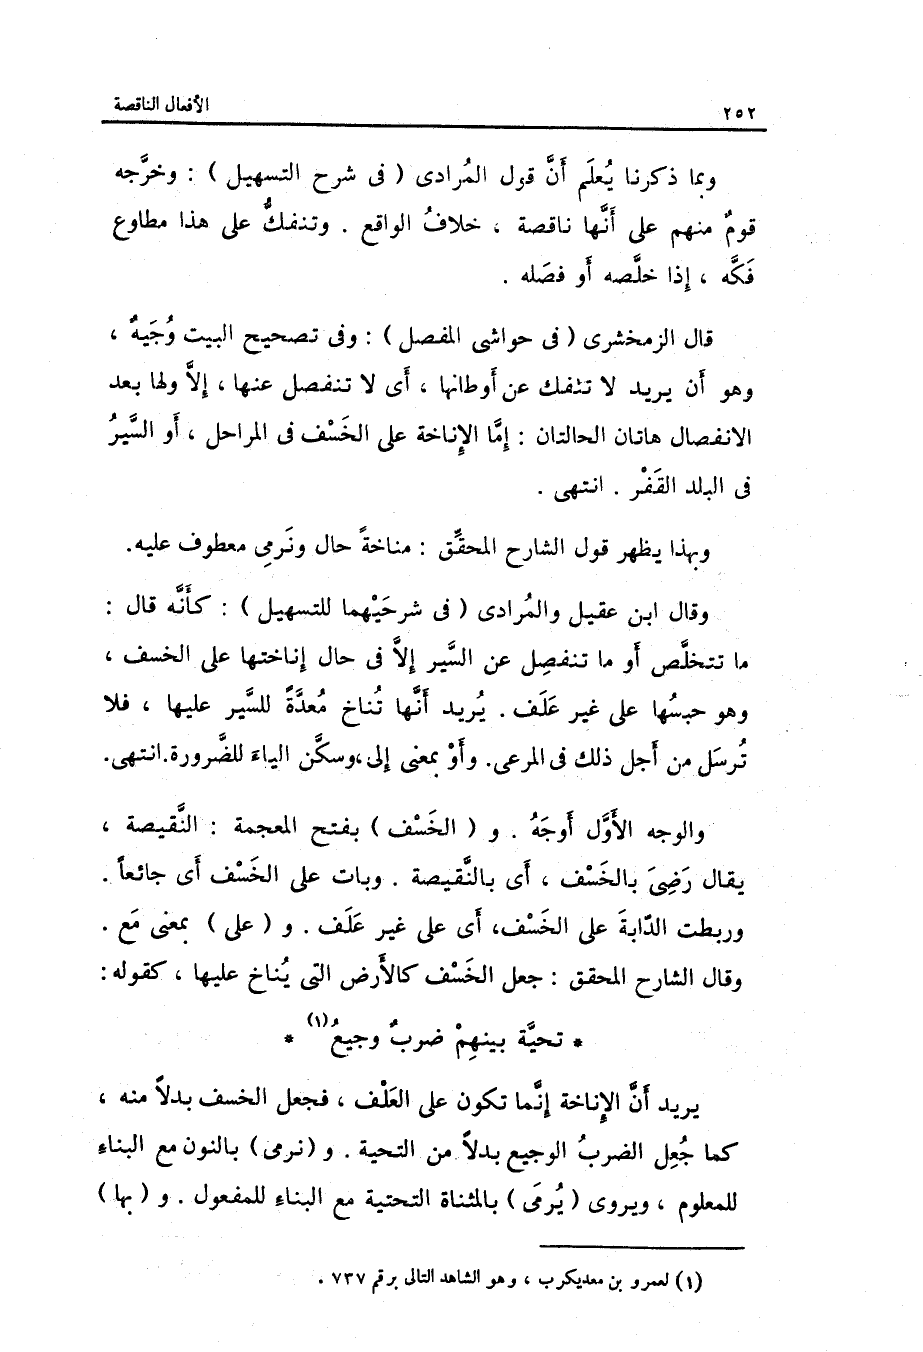 ٢٥٢ الأفعال الناقصة
وبما ذكرنا يُعلَم أَنَّ قول المُرادى ( فى شرح التسهيل ) : وخرَّجه
قومٌ منهم على أَنَّها ناقصة ، خلافُ الواقع . وتنفكُّ على هذا مطاوع
فَكَّه ، إذا خلَّصه أَو فصَله .
قال الزمخشرى ( فى حواشى المفصل ) : وفى تصحيح البيت وُجَيهٌ ،
وهو أَن يريد لا تنفك عن أَوطانها ، أَى لا تنفصل عنها ، إلاَّ ولها بعد
الانفصال هاتان الحالتان : إمَّا الإناخة على الخَسْف فى المراحل ، أَو السَّيرُ
فى البلد القَفْر . انتهى .
وبهذا يظهر قول الشارح المحقِّق : مناخةً حال ونَرمِى معطوف عليه.
وقال ابن عقيل والمُرادى ( فى شرحَيْهما للتسهيل ) : كأَنَّه قال :
ما تتخلَّص أَو ما تنفصِل عن السَّير إلاَّ فى حال إناختها على الخسف ،
وهو حبسُها على غير عَلَف . يُريد أَنَّها تُناخ مُعدَّةً للسَّير عليها ، فلا
تُرسَل من أَجل ذلك فى المرعى. وأَوْ بمعنى إلى،وسكَّن الياءَ للضَّرورة.انتهى.
والوجه الأَوَّل أَوجَهُ . و ( الخَسْف ) بفتح المعجمة : النَّقيصة ،
يقال رَضِىَ بالخَسْف ، أَى بالنَّقيصة . وبات على الخَسْف أَى جائعاً .
وربطت الدّابةَ على الخَسْف، أَى على غير عَلَف . و ( على ) بمعنى مَع .
وقال الشارح المحقق : جعل الخَسْف كالأَرض التى يُناخ عليها ، كقوله:
* تحيَّة بينِهِمْ ضربٌ وجيعُ(١) *
يريد أَنَّ الإناخة إنَّما تكون على العَلْف ، فجعل الخسف بدلاً منه ،
كما جُعِل الضربُ الوجيع بدلاً من التحية . و (نرمى ) بالنون مع البناء
للمعلوم ، ويروى ( يُرمَى ) بالمثناة التحتية مع البناء للمفعول . و ( بها )
(١) لعمرو بن معديكرب ، وهو الشاهد التالى برقم ٧٣٧ .